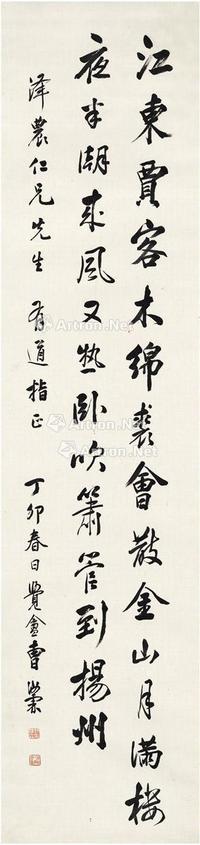 江東賈客木綿裘會散金山月滿樓
夜半潮來風又熟臥吹簫管到揚州
澤農仁兄先生 有道指正 丁卯春日覺盦曹
Artron.Net